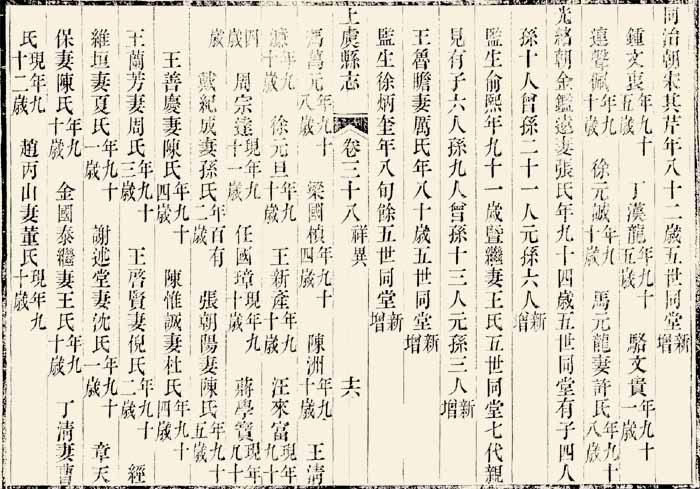 同治朝宋其芹年八十二歲五世同堂新增
鍾文衷年九十五歲 丁漢龍年九十五歲 駱文貴年九十一歲
連聲佩年九十歲 徐元誠年九十歲 馬元龍妻許氏年九十八歲
光緒朝金鑑遠妻張氏年九十四歲五世同堂有子四人
孫十人曾孫二十一人元孫六人新增
監生俞熙年九十一歲暨繼妻王氏五世同堂七代親
見有子六人孫九人曾孫十三人元孫三人新增
王魯瞻妻厲氏年八十歲五世同堂新增
監生徐炳奎年八旬餘五世同堂新增
上虞縣志 卷三十八 祥異 十六
馮萬元年九十八歲 梁國楨年九十四歲 陳洲年九十歲 王清
年九十歲 徐元旦年九十歲 王新產年九十歲 汪來富現年九十
四歲 周宗達現年九十一歲 任國璋現年九十歲 蔣學寶現年九十
歲 戴紀成妻孫氏年百有二歲 張朝陽妻陳氏年九十五歲
王善慶妻陳氏年九十四歲 陳惟誠妻杜氏年九十四歲
王蘭芳妻周氏年九十三歲 王啓賢妻倪氏年九十二歲 經
維垣妻夏氏年九十一歲 謝述堂妻沈氏年九十一歲 章天
保妻陳氏年九十歲 金國泰繼妻王氏年九十歲 丁清妻曹
氏現年九十二歲 趙丙山妻董氏現年九十歲